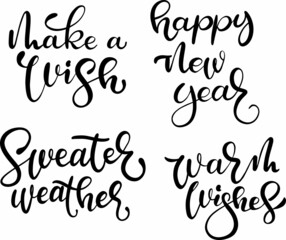 make a
Wish
happy
new
year
Sweater
weather
warm
wishes